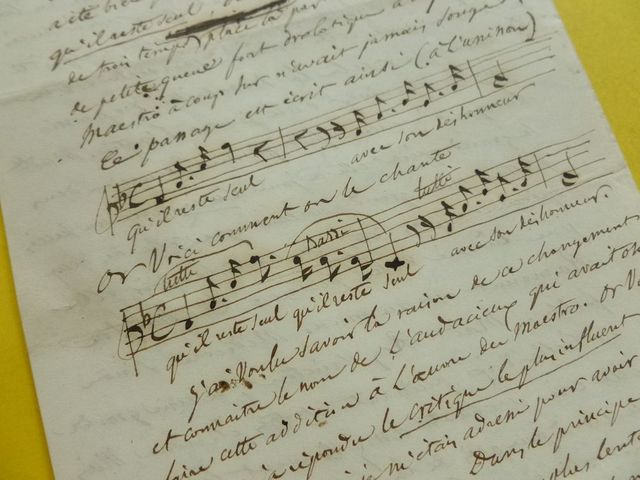 a été bien
qu'il reste seul,
de trois temps, place la par
de petite queue fort drolatique à
Maestro à coup sur n'avait jamais songé!
Ce passage est écrit ainsi (à l'unisson)
qu'il reste seul avec son déshonneur
Or Voici comment on le chante
tutti Bassi tutti
qu'il reste seul qu'il reste seul avec son déshonneur.
J'ai Voulu savoir la raison de ce changement
et connaitre le nom de l'audacieux qui avait osé
faire cette addition à l'œuvre du Maestro. Or
à répondu le critique le plus influent
je m'étais adressé pour avoir
Dans le principe
plus lente